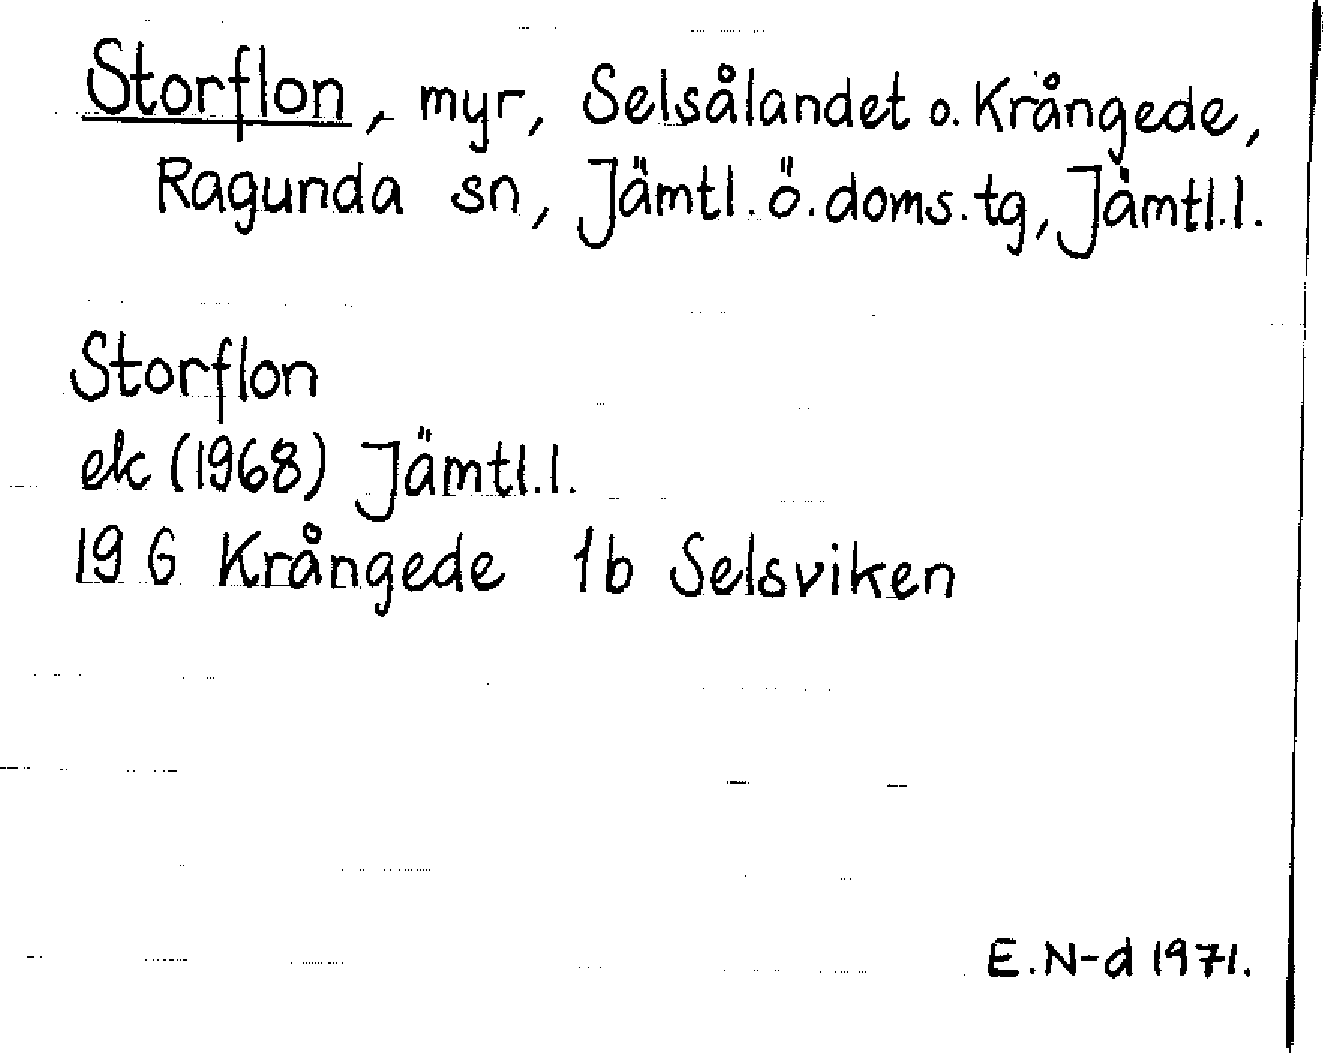 Storflon, myr, Selsålandet o. Krångede,
Ragunda sn, Jämtl. ö. doms. tg, Jämtl. l.
Storflon
ek (1968) Jämtl. l.
19 G Krångede 1b Selsviken
E. N-d 1971.